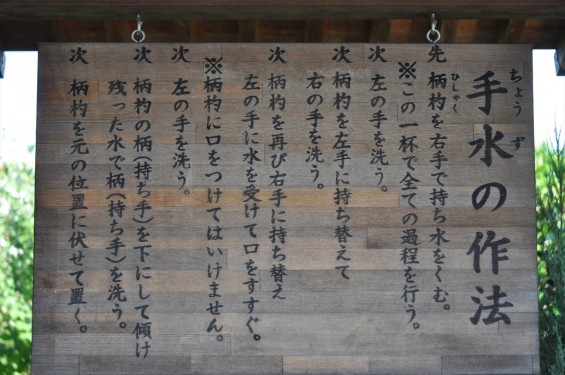 手水の作法
ちょうず
先 柄杓を右手で持ち水をくむ。
ひしゃく
※この一杯で全ての過程を行う。
次 左の手を洗う。
次 柄杓を左手に持ち替えて
右の手を洗う。
次 柄杓を再び右手に持ち替え
左の手に水を受けて口をすすぐ。
※柄杓に口をつけてはいけません。
次 左の手を洗う。
次 柄杓の柄(持ち手)を下にして傾け
残った水で柄(持ち手)を洗う。
次 柄杓を元の位置に伏せて置く。